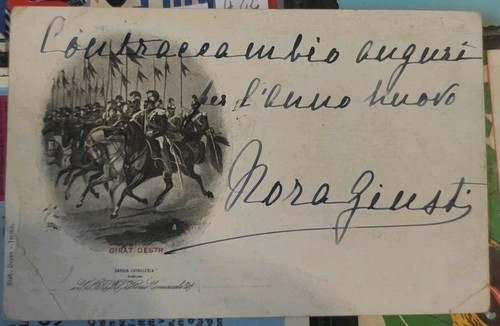 Contraccambio auguri
per l'anno nuovo
Nora Giusti
GIRAT DESTR
SAVOIA CAVALLERIA